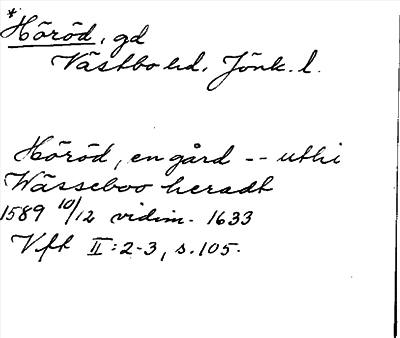 *
Höröd, gd
Västbo hd. Jönk. l.
Höröd, en gård -- uthi
Wässeboo heradt
1589 10/12 vidim. 1633
Vft II:2-3, s.105.